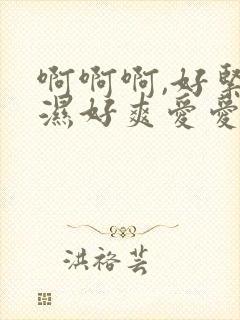 啊啊啊,好紧
濕好爽愛愛
洪裕芸